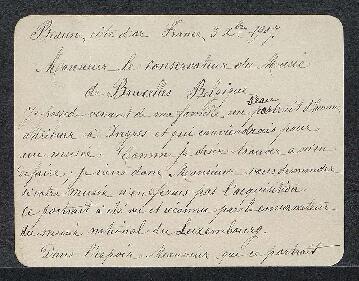 Beaun, côte d'or France, 3 Xbre 1907
Monsieur le conservateur du Musée
de Bruxelles Belgique
Je possède venant de ma famille, un beau portrait d'homme
antérieur à Ingres et qui conviendrait pour
un musée. Comme je désire trouver à m'en
défaire, je viens donc Monsieur vous demander
si votre musée n'en ferais pas l'acquisition
Ce portrait à été vu et reconnu par le conservateur
du musée national du Luxembourg.
Dans l'espoir Monsieur que ce portrait